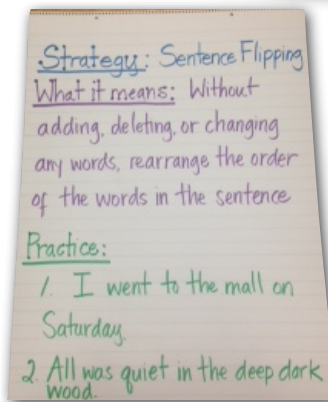 Strategy: Sentence Flipping
What it means: Without
adding, deleting, or changing
any words, rearrange the order
of the words in the sentence
Practice:
1. I went to the mall on
Saturday.
2. All was quiet in the deep dark
wood.